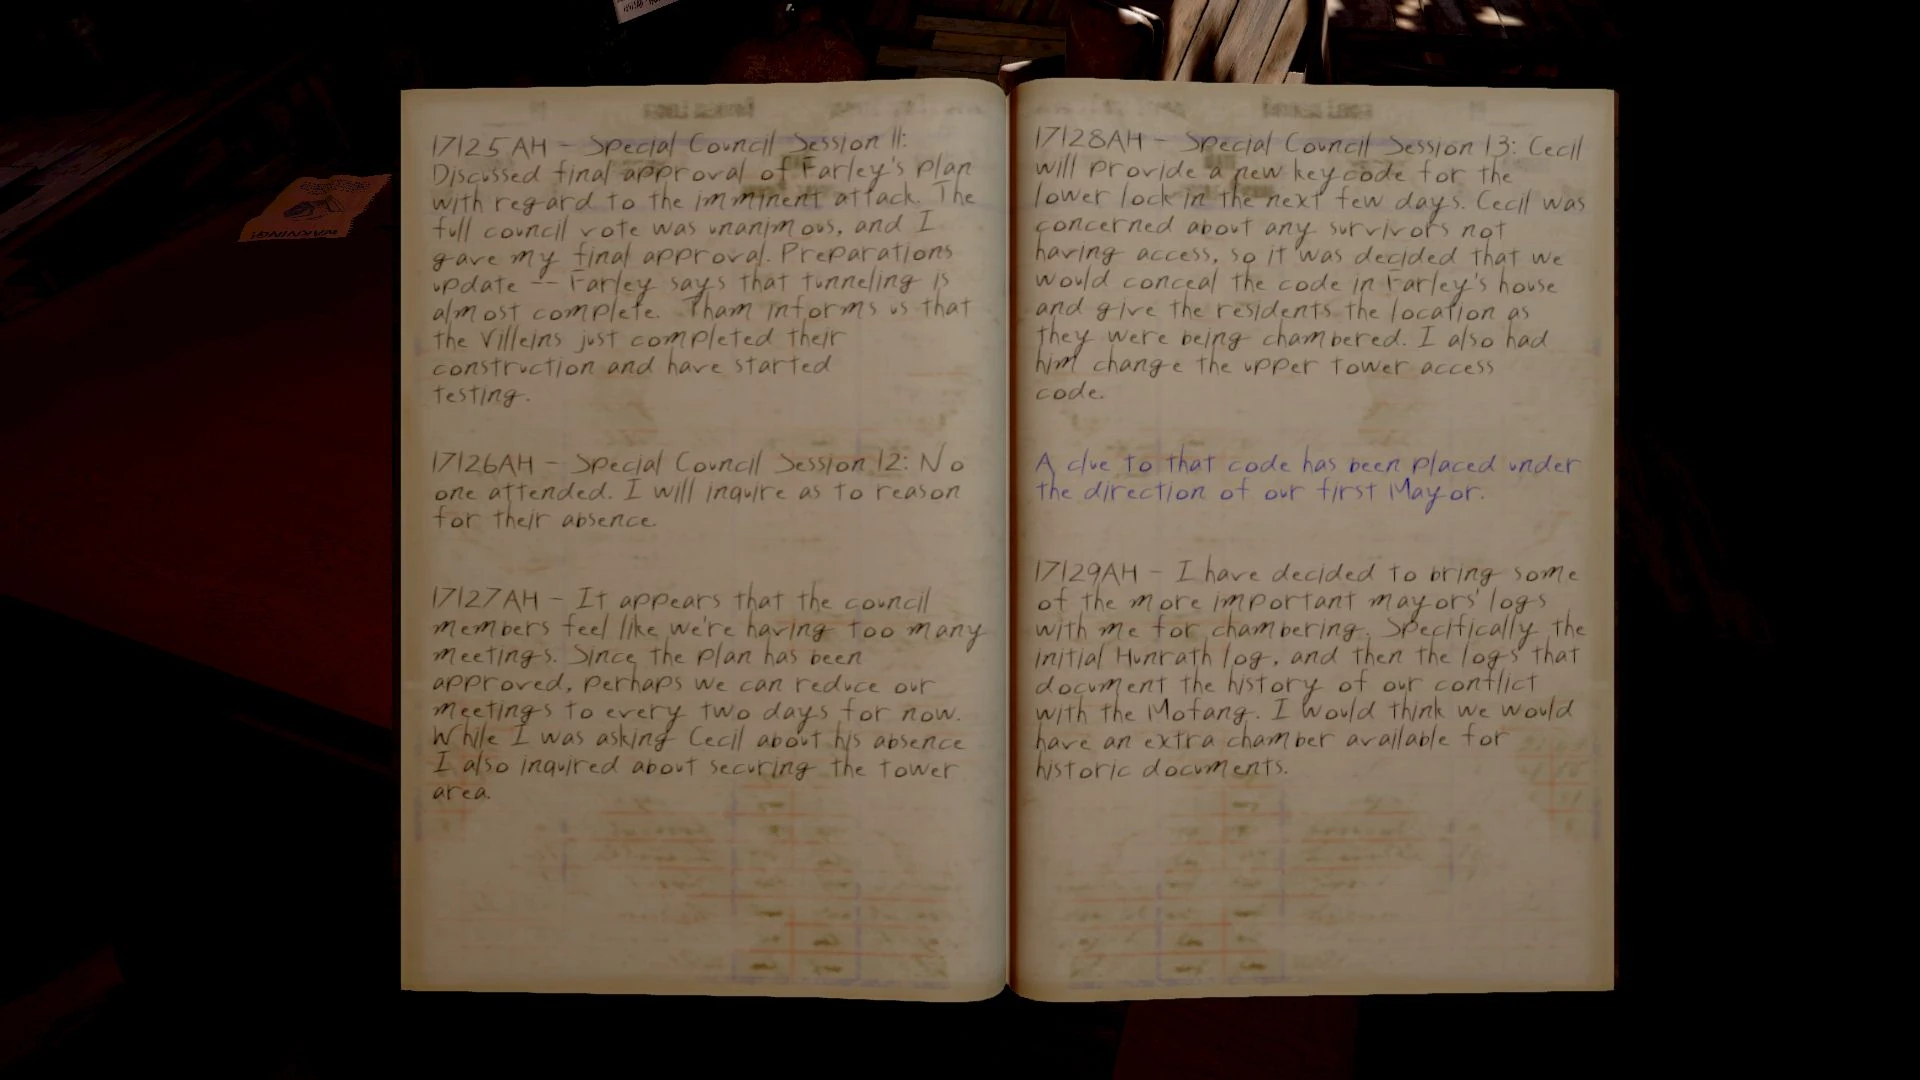 17125AH - Special Council Session 11:
Discussed final approval of Farley's plan
with regard to the imminent attack. The
full council vote was unanimous, and I
gave my final approval. Preparations
update -- Farley says that tunneling is
almost complete. Tham informs us that
the Villeins just completed their
construction and have started
testing.
17126AH - Special Council Session 12: No
one attended. I will inquire as to reason
for their absence.
17127AH - It appears that the council
members feel like we're having too many
meetings. Since the plan has been
approved, perhaps we can reduce our
meetings to every two days for now.
While I was asking Cecil about his absence
I also inquired about securing the tower
area.
17128AH - Special Council Session 13: Cecil
will provide a new keycode for the
lower lock in the next few days. Cecil was
concerned about any survivors not
having access, so it was decided that we
would conceal the code in Farley's house
and give the residents the location as
they were being chambered. I also had
him change the upper tower access
code.
A clue to that code has been placed under
the direction of our first Mayor.
17129AH - I have decided to bring some
of the more important mayors' logs
with me for chambering. Specifically the
initial Hunrath log, and then the logs that
document the history of our conflict
with the Mofang. I would think we would
have an extra chamber available for
historic documents.
WARNING!